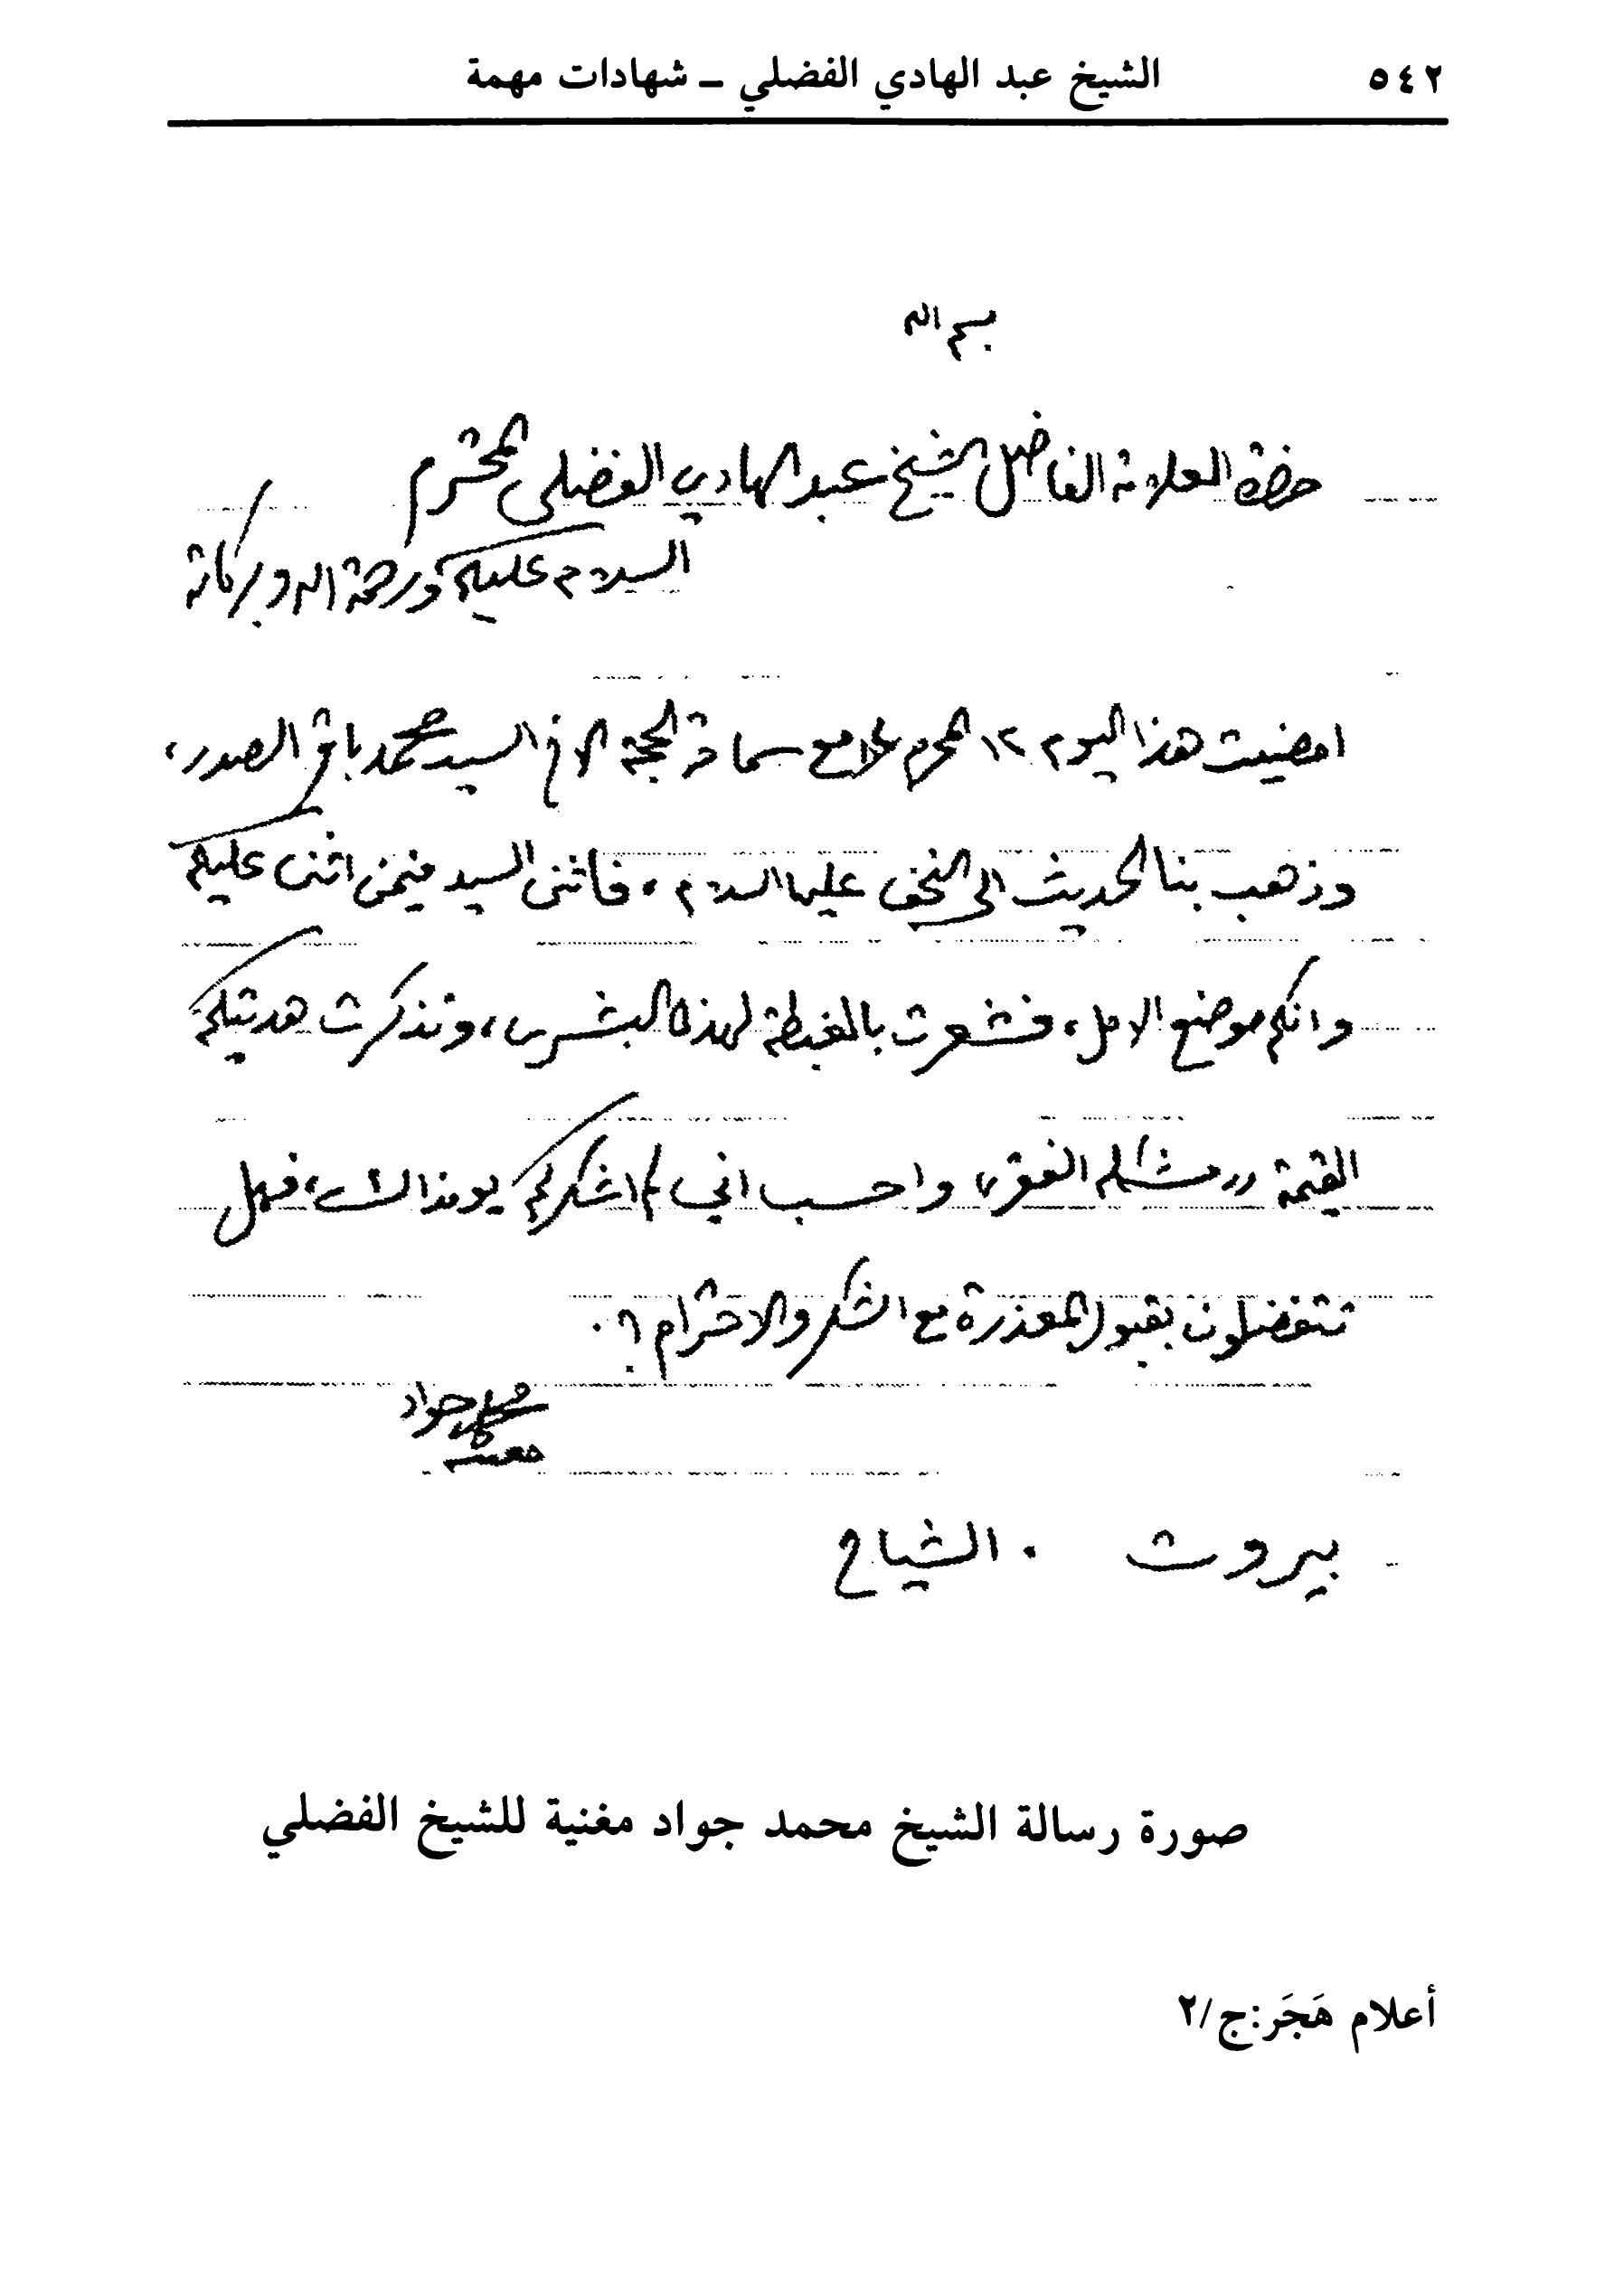 ٥٤٢
الشيخ عبد الهادي الفضلي ــ شهادات مهمة
بسم الله
حضرة العلامة الفاضل الشيخ عبد الهادي الفضلي المحترم
السلام عليكم ورحمة الله وبركاته
امضيت هذا اليوم ١٢ المحرم مع سماحة الحجة الاخ السيد محمد باقر الصدر،
وذهب بنا الحديث الى النجف عليها السلام، فاثنى السيد فيمن اثنى عليكم
وانكم موضع الامل، فشعرت بالغبطة لهذه البشرى، وتذكرت هديتكم
القيمة «مشكلة الفقر» واحسب اني لم اشكركم يومذاك، فهل
تتفضلون بقبول المعذرة مع الشكر والاحترام؟.
محمد جواد
مغنية
بيروت . الشياح
صورة رسالة الشيخ محمد جواد مغنية للشيخ الفضلي
أعلام هَجَر:ج/٢